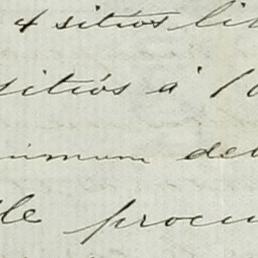 4 sitiós li
sitiós á 10
inimum de
le procu